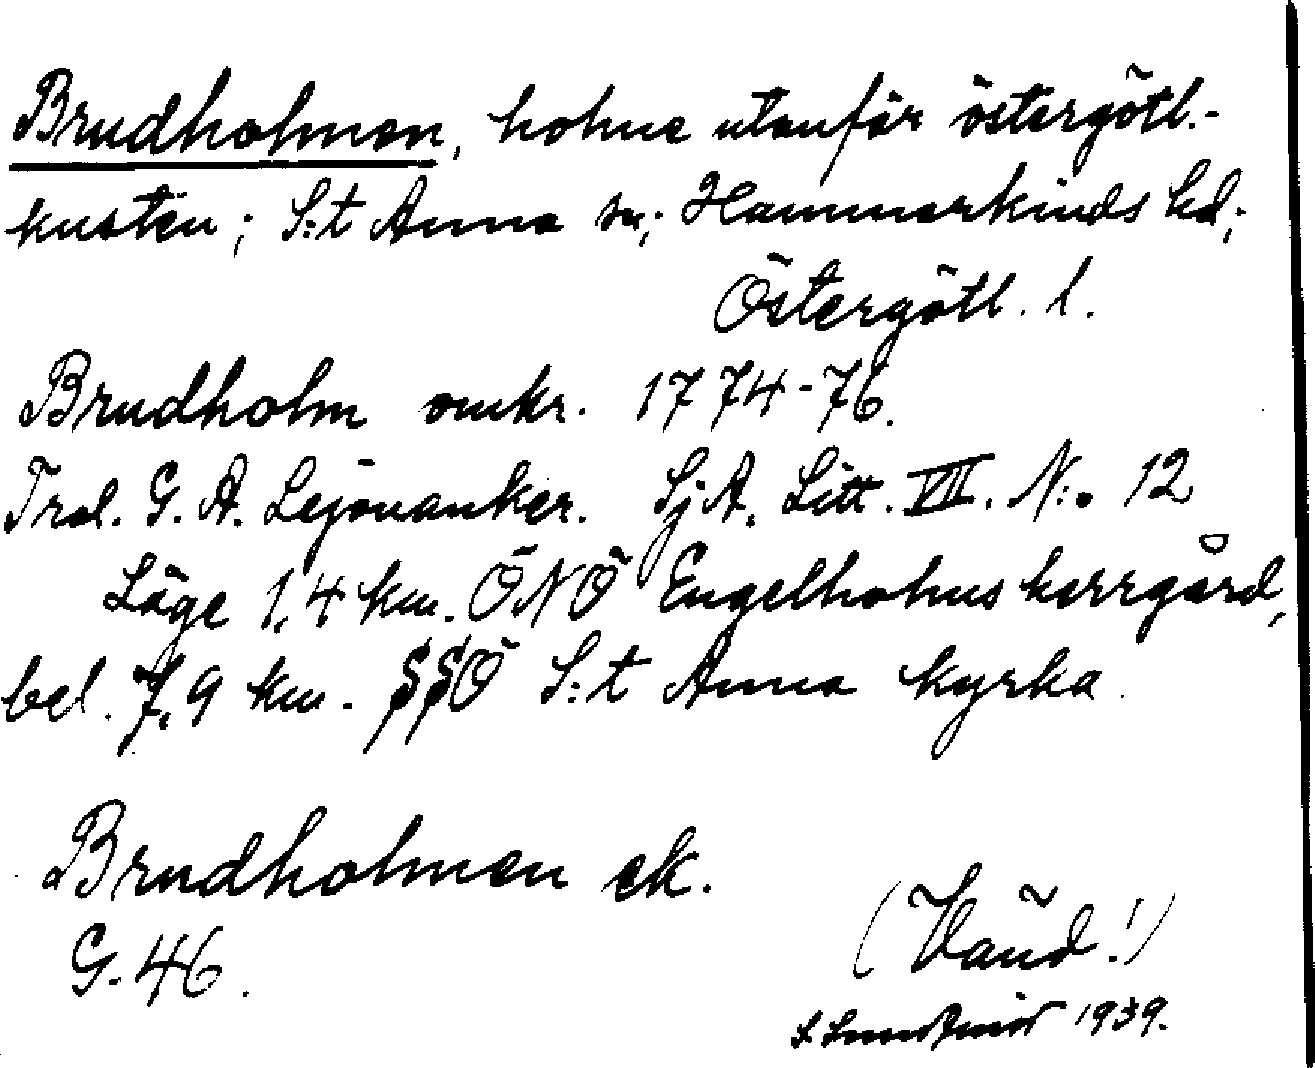 Brudholmen, holme utanför östergötl.-
kusten; S:t Anna sn; Hammarkinds hd;
Östergötl. l.
Brudholm omkr. 1774-76.
Trol. G. A. Lejonanker. SjA. Litt. VII. N:o 12
Läge 1,4 km. ÖNÖ Engelholms herrgård,
bel. 7,9 km. SSÖ S:t Anna kyrka.
Brudholmen ek.
G. 46.
(Vänd!)
1939.